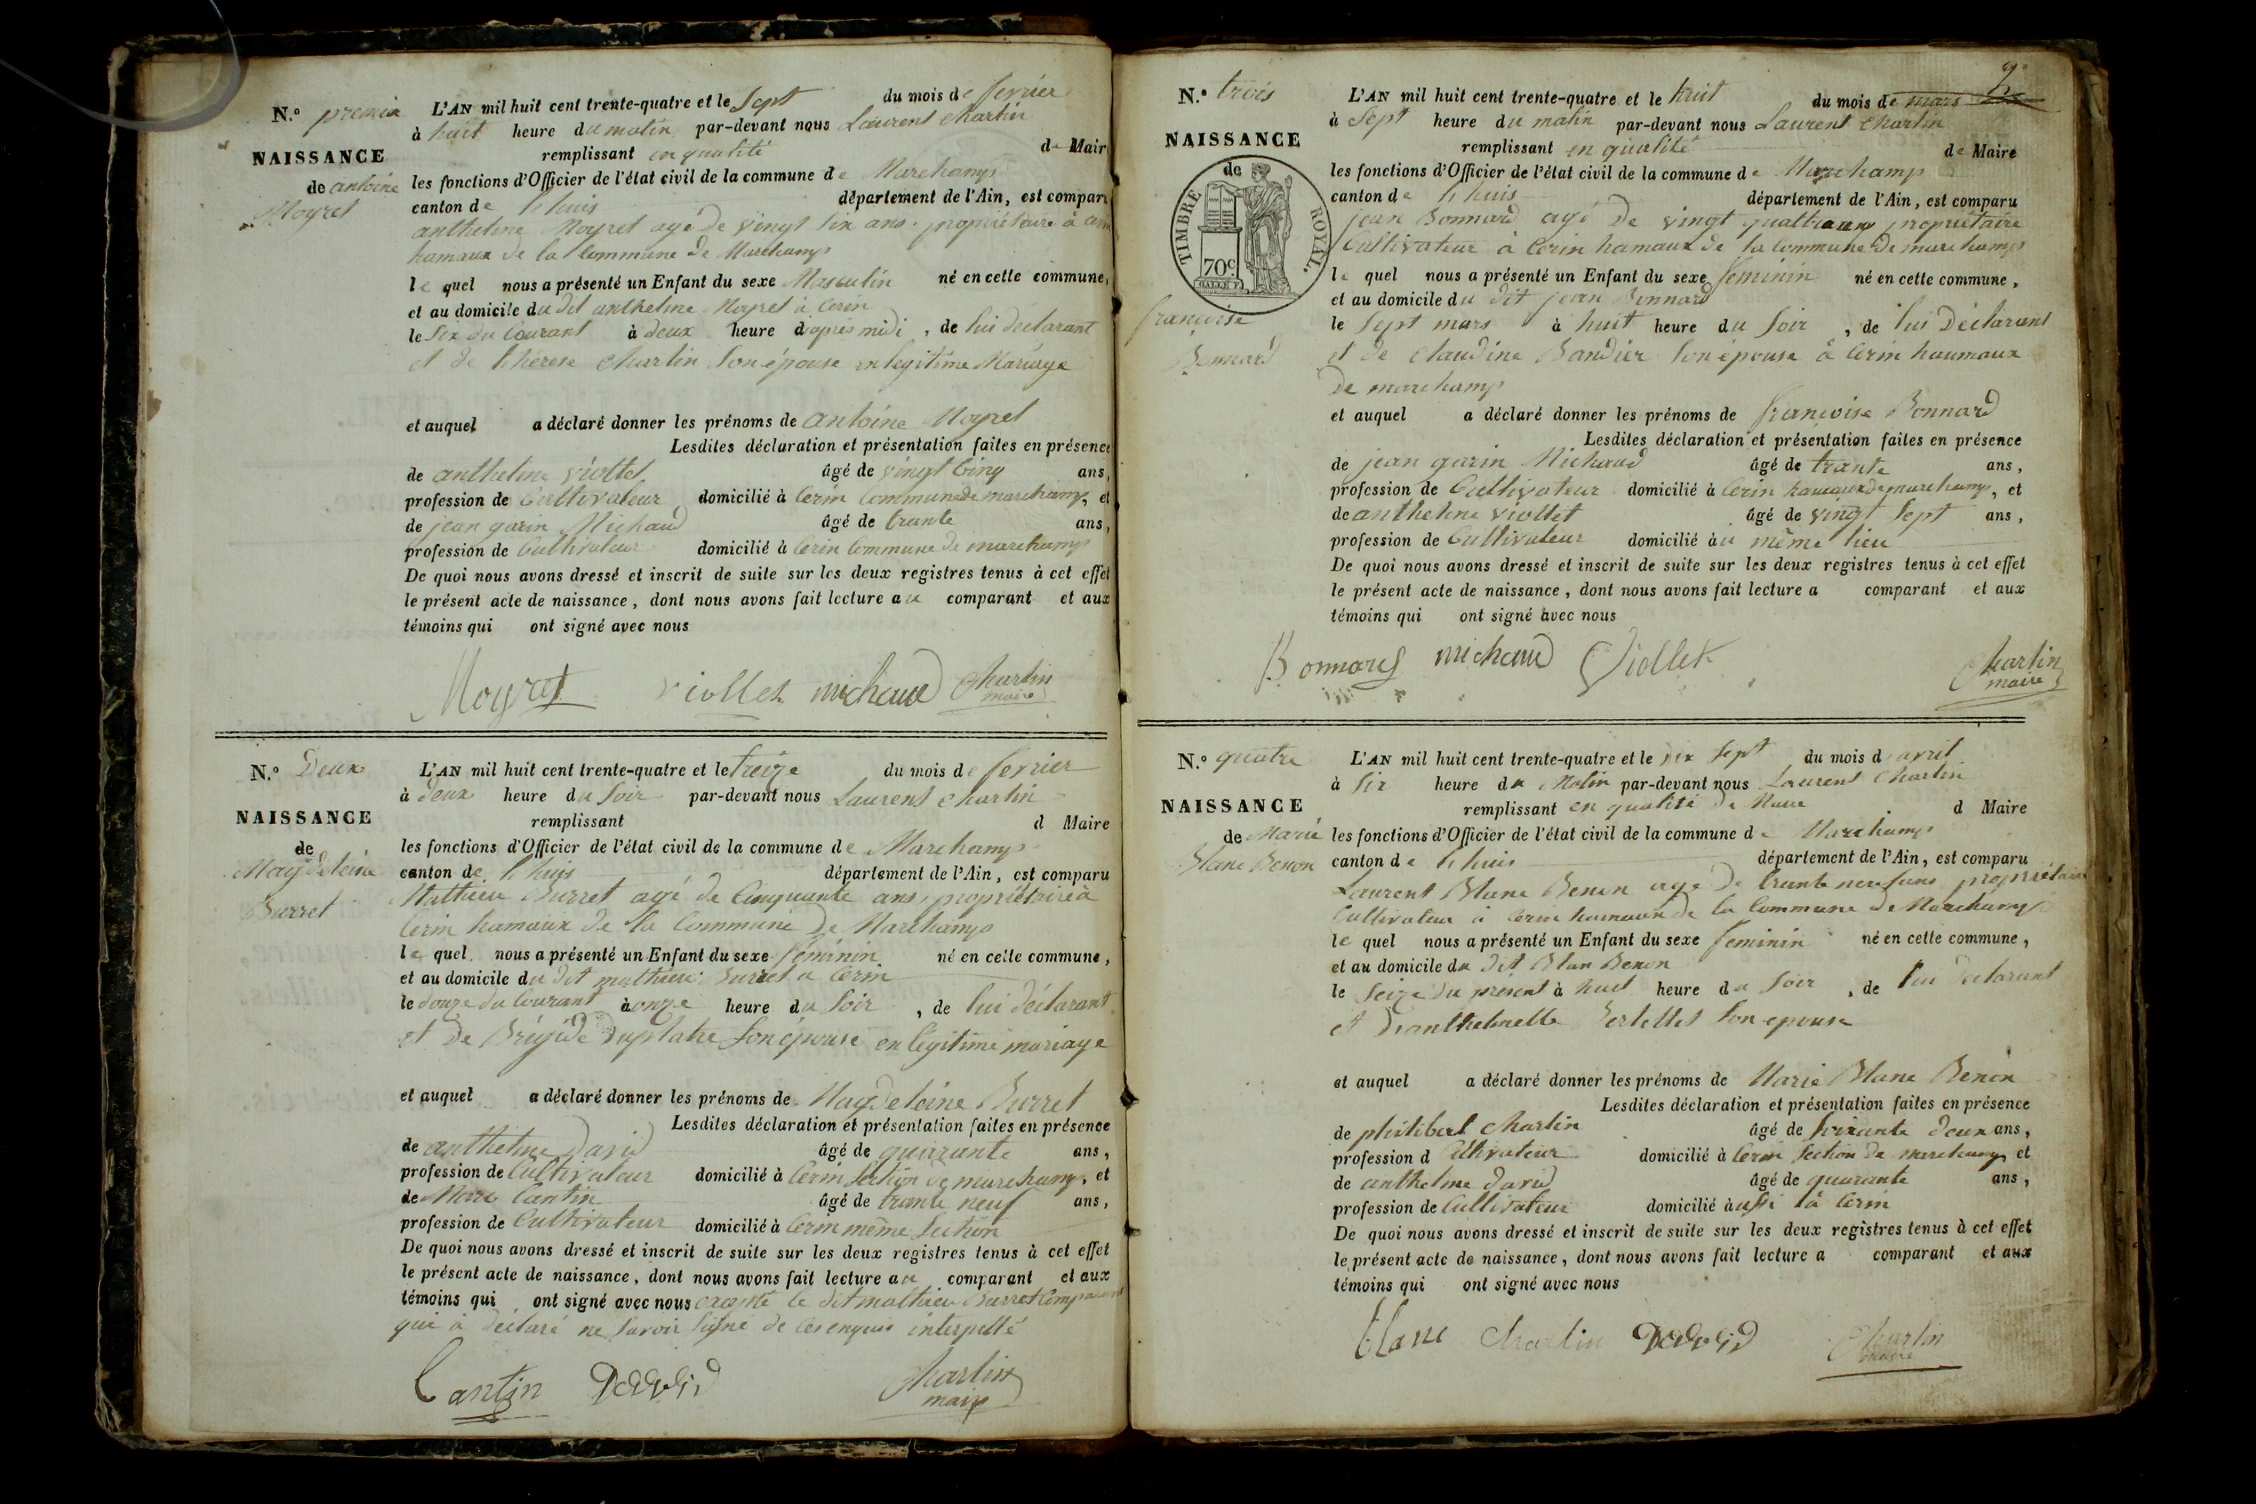 N.o premier
NAISSANCE
de antoine
Moyret
L'AN mil huit cent trente-quatre et le Sept du mois de fevrier
à huit heure du matin par-devant nous Laurent Charlin
remplissant en qualité de Maire
les fonctions d'Officier de l'état civil de la commune de Marchamp
canton de lhuis département de l'Ain, est comparu
anthelme Moyret agé de vingt six ans, propriétaire à cerin
hamaux de la Commune de Marchamp
le quel nous a présenté un Enfant du sexe Masculin né en cette commune,
et au domicile du dit anthelme Moyret à Cerin
le Six du Courant à deux heure d'après midi, de lui declarant
et de therese Charlin Son épouse en legitime Mariage
et auquel a déclaré donner les prénoms de antoine Moyret
Lesdites déclaration et présentation faites en présence
de anthelme viollet âgé de vingt Cinq ans,
profession de Cultivateur domicilié à Cerin Commune de marchamp, et
de jean garin Michaud âgé de trante ans,
profession de Cultivateur domicilié à Cerin Commune de marchamp
De quoi nous avons dressé et inscrit de suite sur les deux registres tenus à cet effet
le présent acte de naissance, dont nous avons fait lecture au comparant et aux
témoins qui ont signé avec nous
Moyret viollet michaud Charlin
maire
N.o Deux
NAISSANCE
de
Magdeleine
Burret
L'AN mil huit cent trente-quatre et le treize du mois de fevrier
à deux heure du Soir par-devant nous Laurent Charlin
remplissant d Maire
les fonctions d'Officier de l'état civil de la commune de Marchamp
canton de lhuis département de l'Ain, est comparu
Mathieu Burret agé de Cinquante ans, propriétaire à
Cerin hamaux de la Commune de Marchamp
le quel nous a présenté un Enfant du sexe féminin né en cette commune,
et au domicile du dit mathieu Burret a Cerin
le douze du Courant à onze heure du Soir, de lui déclarant
et de Brigide Duplatre Son épouse en légitime mariage
et auquel a déclaré donner les prénoms de Magdeleine Burret
Lesdites déclaration et présentation faites en présence
de anthelme David âgé de quarante ans,
profession de Cultivateur domicilié à Cerin Section de marchamp, et
de Marc Cantin âgé de trante neuf ans,
profession de Cultivateur domicilié à Cerin même Section
De quoi nous avons dressé et inscrit de suite sur les deux registres tenus à cet effet
le présent acte de naissance, dont nous avons fait lecture au comparant et aux
témoins qui ont signé avec nous excepté le dit mathieu Burret Comparant
qui à déclaré ne Savoir Signé de Ces enquis interpellé
Cantin David Charlin
maire
2
N.o trois
NAISSANCE
de
TIMBRE ROYAL.
70c
françoise
Bonnard
L'AN mil huit cent trente-quatre et le huit du mois de mars
à Sept heure du matin par-devant nous Laurent Charlin
remplissant en qualité de Maire
les fonctions d'Officier de l'état civil de la commune de Marchamp
canton de lhuis département de l'Ain, est comparu
jean Bonnard agé de vingt quatre ans propriétaire
Cultivateur à Cerin hamaux de la Commune de marchamp
le quel nous a présenté un Enfant du sexe feminin né en cette commune,
et au domicile du dit jean Bonnard
le Sept mars à huit heure du Soir, de lui Déclarant
et de Claudine Bandier Son épouse à Cerin haumaux
de marchamp
et auquel a déclaré donner les prénoms de françoise Bonnard
Lesdites déclaration et présentation faites en présence
de jean garin Michaud âgé de trante ans,
profession de Cultivateur domicilié à Cerin hamaux de marchamp, et
de anthelme viollet âgé de vingt Sept ans,
profession de Cultivateur domicilié au même lieu
De quoi nous avons dressé et inscrit de suite sur les deux registres tenus à cet effet
le présent acte de naissance, dont nous avons fait lecture a comparant et aux
témoins qui ont signé avec nous
Bonnard michaud Viollet Charlin
maire
N.o quatre
NAISSANCE
de Marie
Blanc Benon
L'AN mil huit cent trente-quatre et le dix Sept du mois d avril
à Six heure du Matin par-devant nous Laurent Charlin
remplissant en qualité de Maire d Maire
les fonctions d'Officier de l'état civil de la commune de Marchamp
canton de lhuis département de l'Ain, est comparu
Laurent Blanc Benon age De trante neuf ans propriétaire
Cultivateur à Cerin hamaux de la Commune de Marchamp
le quel nous a présenté un Enfant du sexe feminin né en cette commune,
et au domicile du dit Blan Benon
le Seize du présent à huit heure du Soir, de lui declarant
et D'anthelmette Bertellet Son epouse
et auquel a déclaré donner les prénoms de Marie Blanc Benon
Lesdites déclaration et présentation faites en présence
de philibert Charlin âgé de Soixante deux ans,
profession d Cultivateur domicilié à Cerin Section de marchamp et
de anthelme david âgé de quarante ans,
profession de Cultivateur domicilié aussi à Cerin
De quoi nous avons dressé et inscrit de suite sur les deux registres tenus à cet effet
le présent acte de naissance, dont nous avons fait lecture a comparant et aux
témoins qui ont signé avec nous
blanc Charlin David Charlin
maire